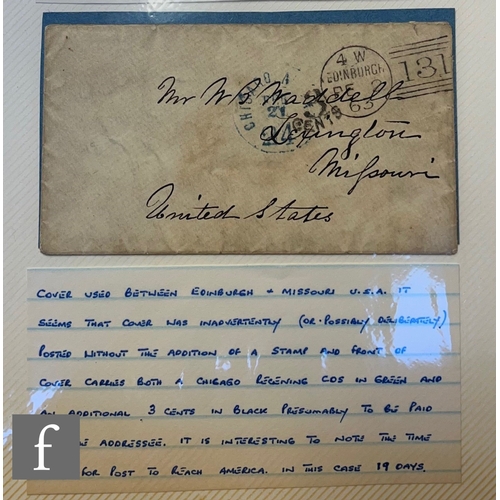 4 W
EDINBURGH
DE
63
131
CHICAGO
27
3
CENTS
Mr W B Waddell
Lexington
Missouri
United States
COVER USED BETWEEN EDINBURGH + MISSOURI U.S.A. IT
SEEMS THAT COVER WAS INADVERTENTLY (OR POSSIBLY DELIBERATELY)
POSTED WITHOUT THE ADDITION OF A STAMP AND FRONT OF
COVER CARRIES BOTH A CHICAGO RECEIVING CDS IN GREEN AND
AN ADDITIONAL 3 CENTS IN BLACK PRESUMABLY TO BE PAID
ADDRESSEE. IT IS INTERESTING TO NOTE THE TIME
FOR POST TO REACH AMERICA. IN THIS CASE 19 DAYS.
f